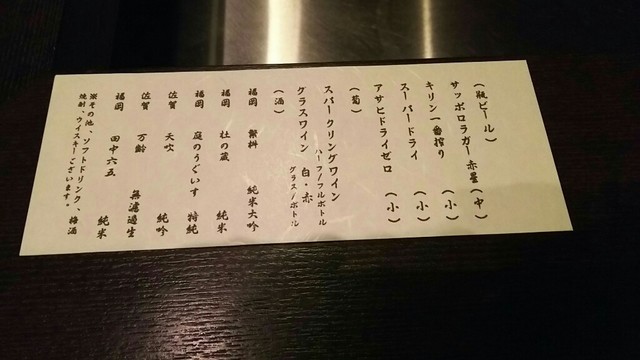 (瓶ビール)
サッポロラガー赤星(中)
キリン一番搾り(小)
スーパードライ(小)
アサヒドライゼロ(小)
(葡)
スパークリングワイン
ハーフ/フルボトル
グラスワイン 白・赤
グラス/ボトル
(酒)
福岡 繁桝 純米大吟
福岡 杜の蔵 純米
福岡 庭のうぐいす 特純
佐賀 天吹 純吟
佐賀 万齢 無濾過生
福岡 田中六五 純米
※その他、ソフトドリンク、梅酒
焼酎、ウイスキーございます。